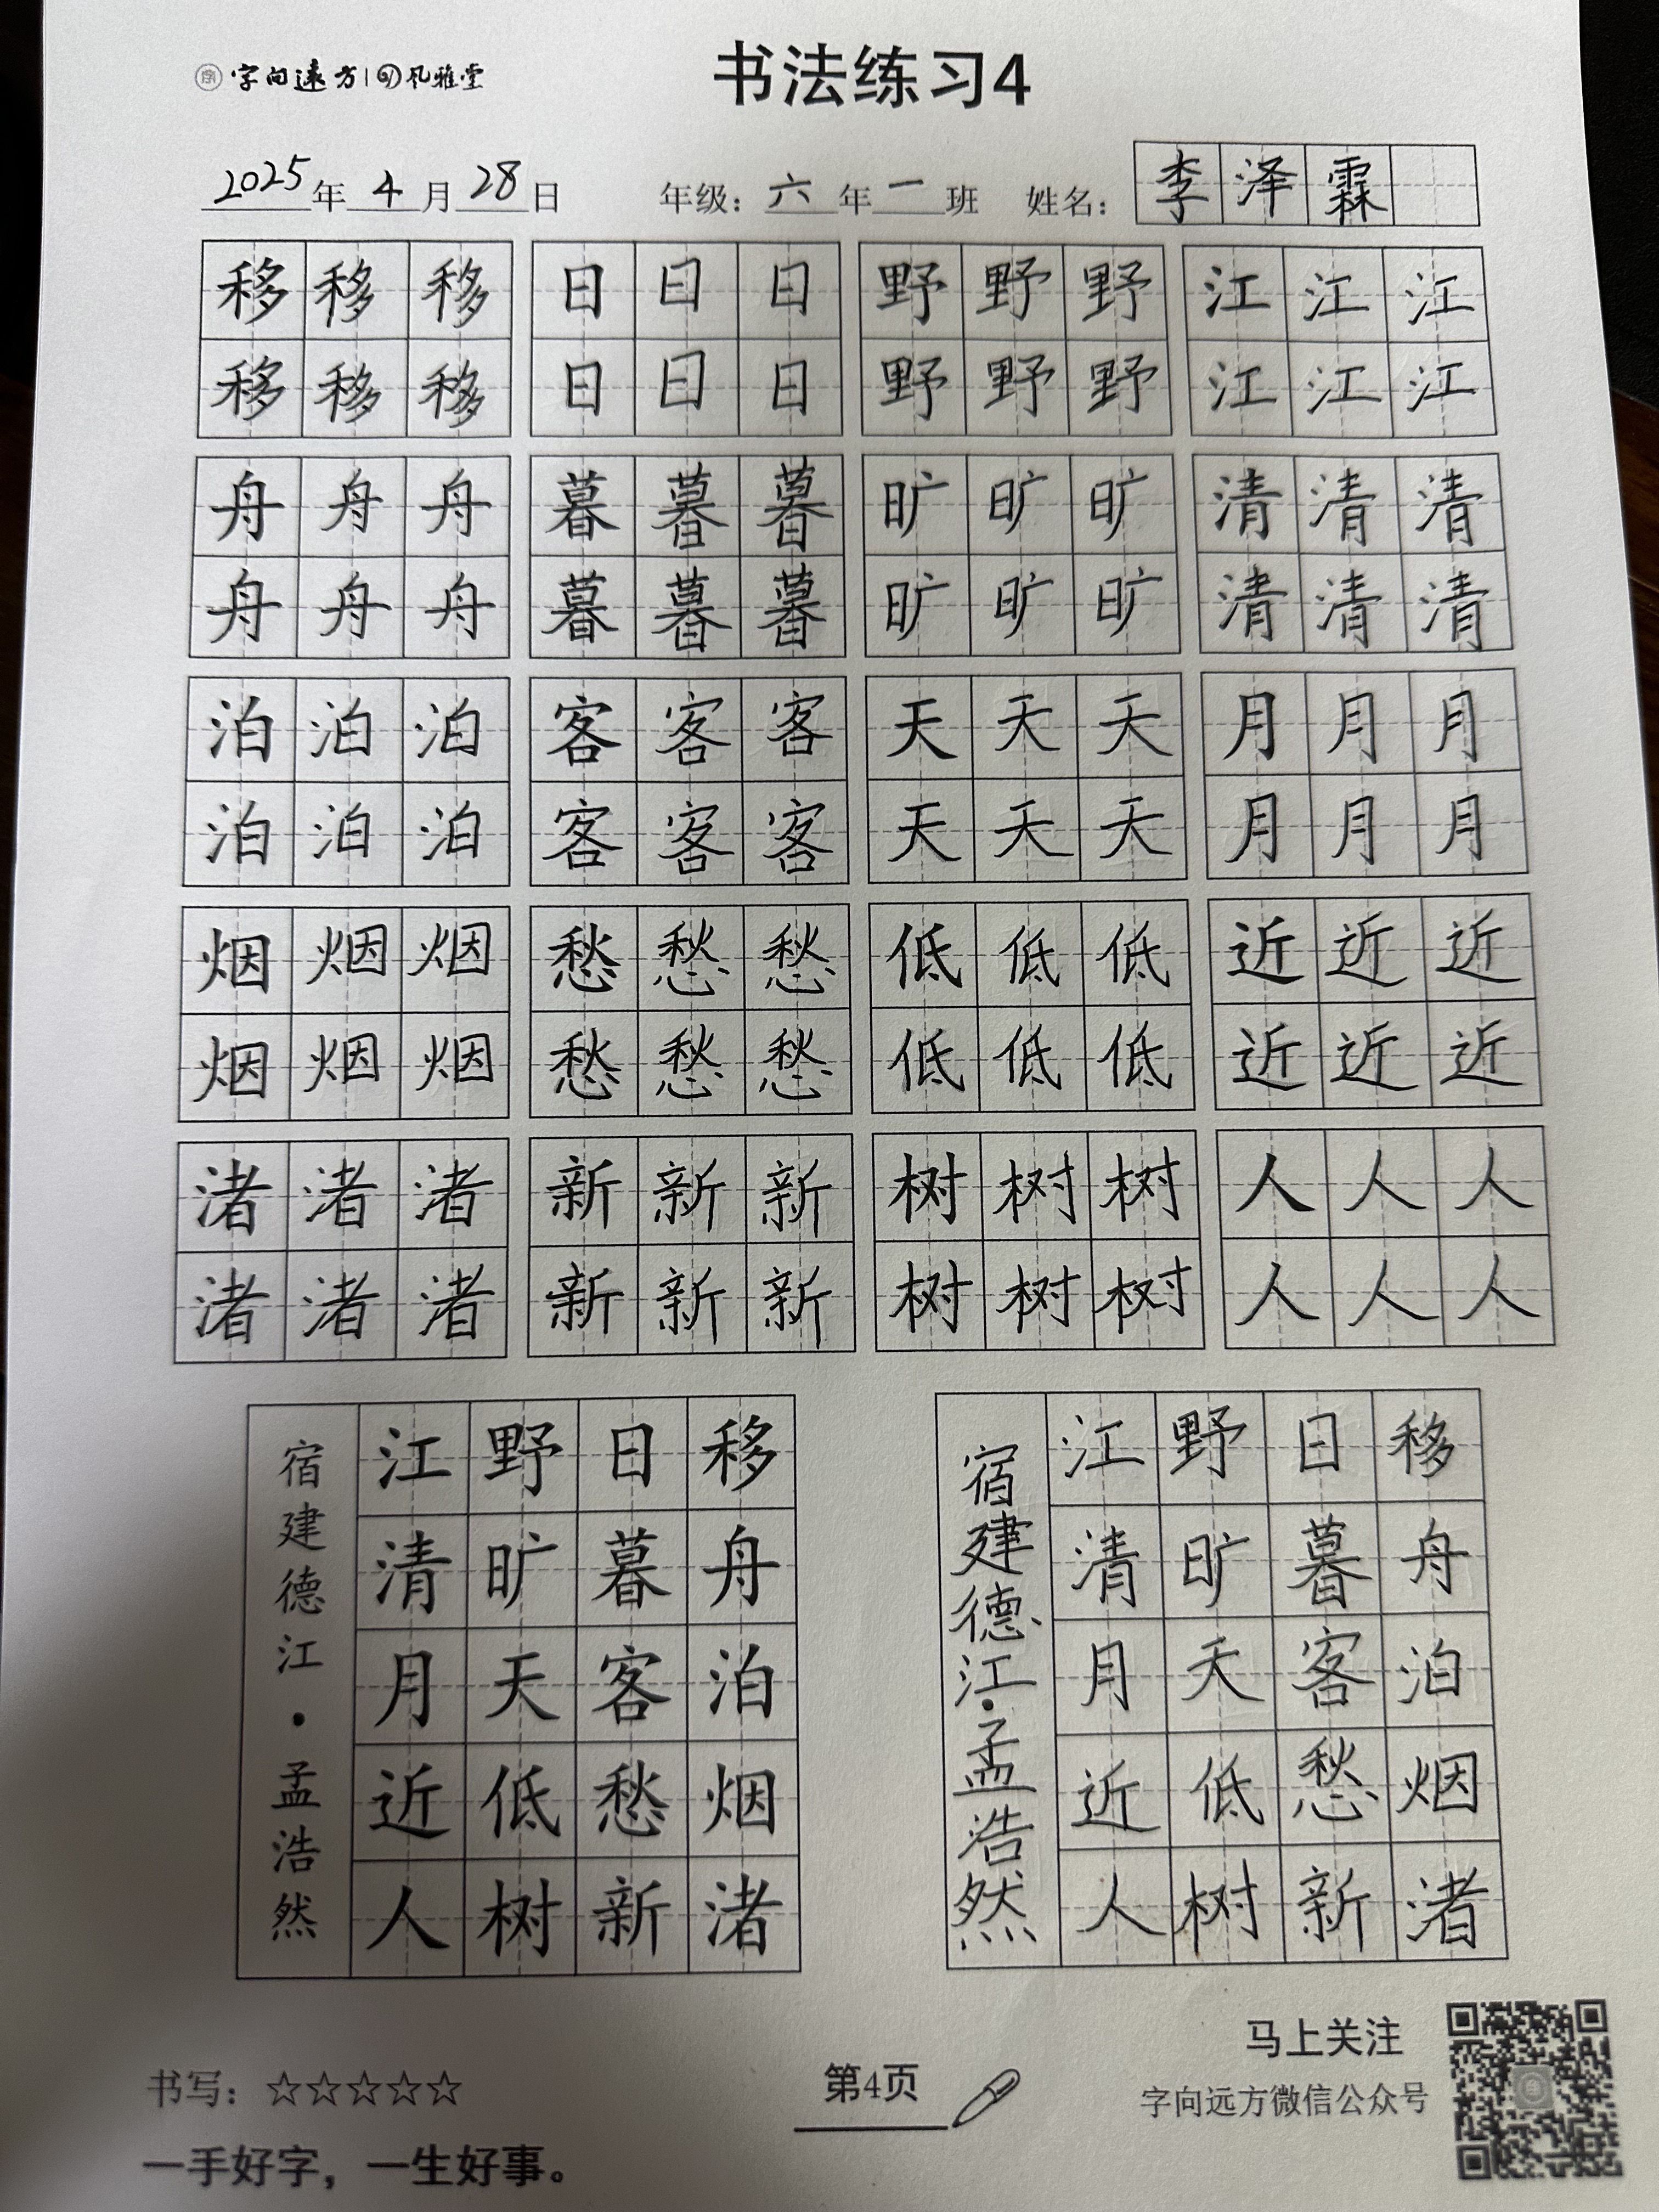 字向远方 风雅堂
书法练习4
2025年4月28日 年级：六年一班 姓名：李泽霖
移移移 日日日 野野野 江江江
移移移 日日日 野野野 江江江
舟舟舟 暮暮暮 旷旷旷 清清清
舟舟舟 暮暮暮 旷旷旷 清清清
泊泊泊 客客客 天天天 月月月
泊泊泊 客客客 天天天 月月月
烟烟烟 愁愁愁 低低低 近近近
烟烟烟 愁愁愁 低低低 近近近
渚渚渚 新新新 树树树 人人人
渚渚渚 新新新 树树树 人人人
移舟泊烟渚
日暮客愁新
野旷天低树
江清月近人
宿建德江·孟浩然
移舟泊烟渚
日暮客愁新
野旷天低树
江清月近人
宿建德江·孟浩然
书写：☆☆☆☆☆
一手好字，一生好事。
第4页
马上关注
字向远方微信公众号